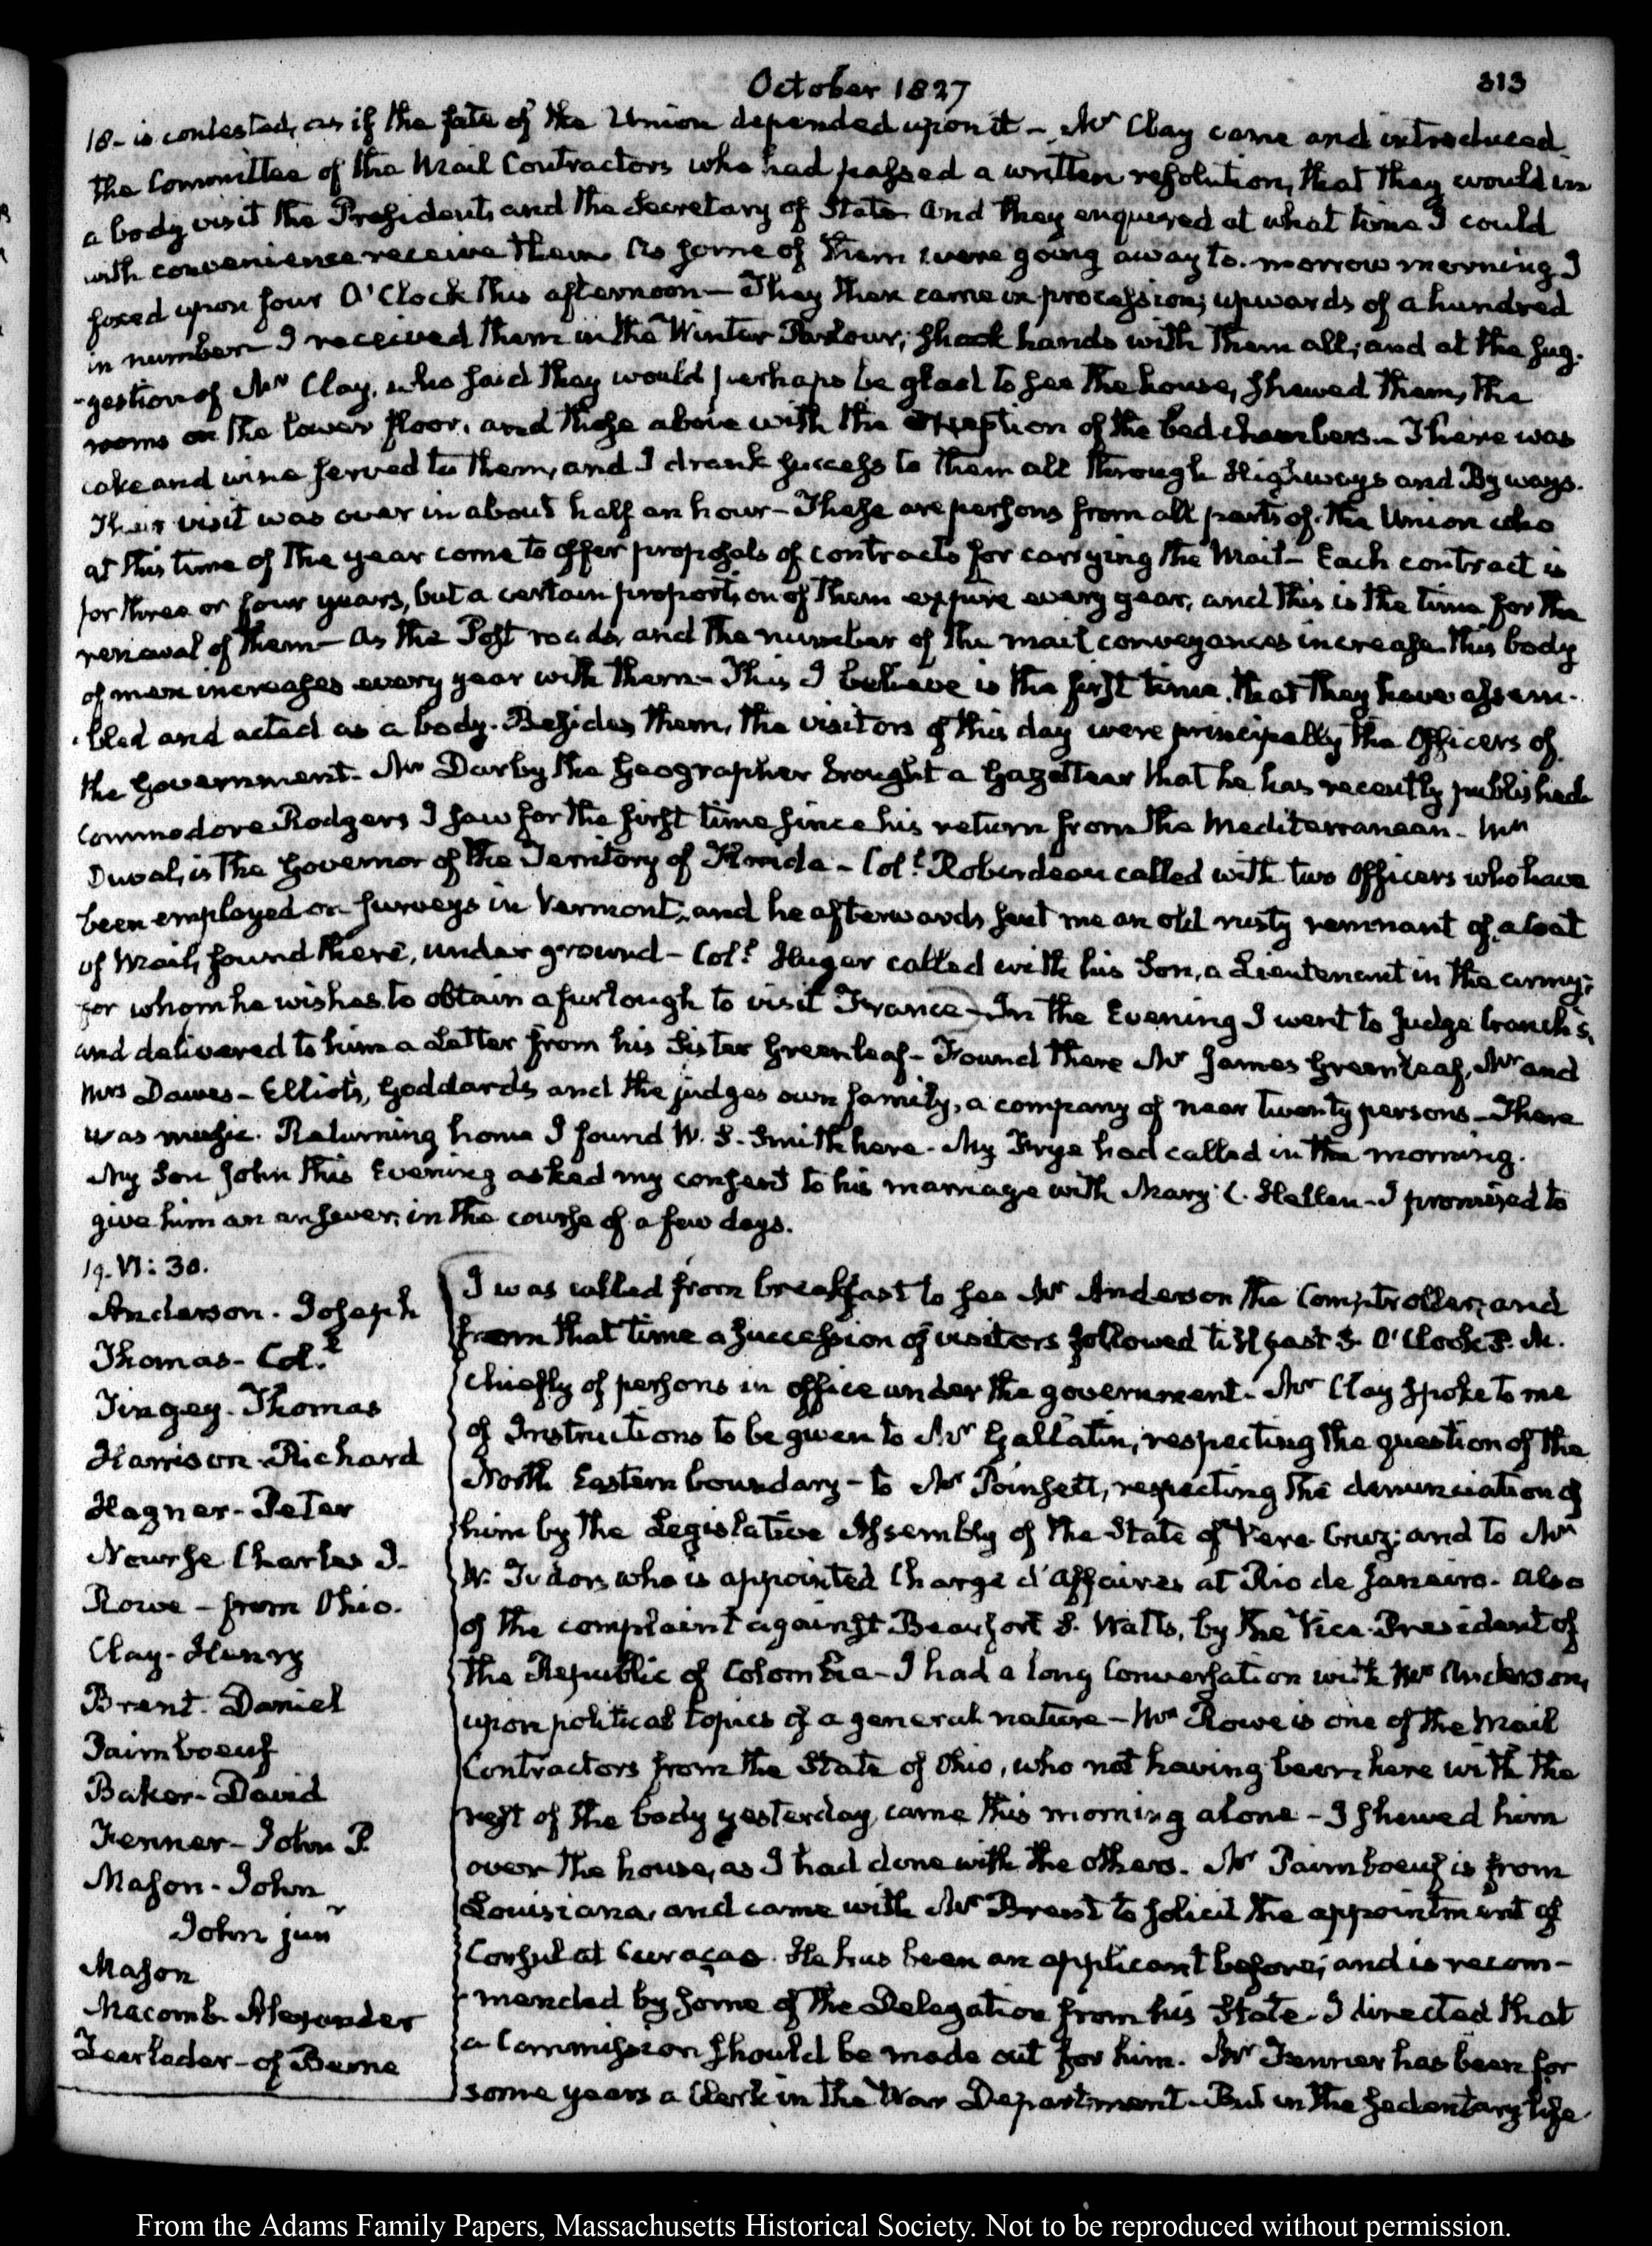 October 1827
313
18- is contested, as if the fate of the Union depended upon it - Mr Clay came and introduced
the Committee of the Mail Contractors who had passed a written resolution, that they would in
a body visit the President, and the Secretary of State and they enquered at what time I could
with convenience receive them. As some of them were going away to-morrow morning I
fixed upon four O'Clock this afternoon - They then came in procession, upwards of a hundred
in number - I received them in the Winter Parlour; shook hands with them all; and at the sug-
-gestion of Mr Clay, who said they would perhaps be glad to see the house, shewed them, the
rooms on the lower floor, and those above with the exception of the bed chambers - There was
cake and wine served to them, and I drank success to them all through Highways and By ways.
Their visit was over in about half an hour - These are persons from all parts of the Union who
at this time of the year come to offer proposals of contracts for carrying the Mail - Each contract is
for three or four years, but a certain proportion of them expire every year, and this is the time for the
renewal of them - As the Post roads, and the number of the mail conveyances increase this body
of men increases every year with them - This I believe is the first time that they have assem-
-bled and acted as a body. Besides them, the visitors of this day were principally the Officers of
the Government. Mr Darby the Geographer brought a Gazetteer that he has recently published
Commodore Rodgers I saw for the first time since his return from the Mediterranean - Mr
Duval, is the Governor of the Territory of Florida - Colt. Roberdeau called with two Officers who have
been employed on surveys in Vermont, and he afterwards sent me an old rusty remnant of a coat
of Mail, found there, under ground - Colt. Huger called with his Son, a Lieutenant in the army;
for whom he wishes to obtain a furlough to visit France - In the Evening I went to Judge Cranch's,
and delivered to him a Letter from his Sister Greenleaf - Found there Mr James Greenleaf, Mr and
Mrs Dawes - Elliots, Goddards and the judges own family, a company of near twenty persons - There
was music. Returning home I found W. S. Smith here. Mr Frye had called in the morning.
My Son John this Evening asked my consent to his marriage with Mary C. Hellen - I promised to
give him an answer, in the course of a few days.
19. VI: 30.
Anderson. Joseph
Thomas - Col.
Tingey. Thomas
Harrison. Richard
Hagner - Peter
Nourse Charles J.
Rowe - from Ohio.
Clay - Henry
Brent. Daniel
Paimboeuf
Baker - David
Fenner - John P.
Mason - John
John junr
Mason
Macomb Alexander
of Berne
I was called from breakfast to see Mr Anderson the Comptroller, and
from that time a succession of visitors followed till past 3 O'Clock P. M.
chiefly of persons in office under the government. Mr Clay spoke to me
of Instructions to be given to Mr Gallatin, respecting the question of the
North Eastern boundary - to Mr Poinsett, respecting the denunciation of
him by the Legislative Assembly of the State of Vera Cruz; and to Mr
W. Tudor, who is appointed Chargé d'Affaires at Rio de Janeiro - also
of the complaint against Beaufort T. Watts, by the Vice-President of
the Republic of Colombia - I had a long Conversation with Mr Anderson,
upon political topics of a general nature - Mr Rowe is one of the Mail
Contractors from the State of Ohio, who not having been here with the
rest of the body yesterday, came this morning alone - I shewed him
over the house, as I had done with the others. Mr Paimboeuf is from
Louisiana, and came with Mr Brent to solicit the appointment of
Consul at Curaçao. He has been an applicant before; and is recom-
-mended by some of the Delegation from his State - I directed that
a Commission should be made out for him. Mr Fenner has been for
some years a Clerk in the War Department. But in the sedentary life
From the Adams Family Papers, Massachusetts Historical Society. Not to be reproduced without permission.